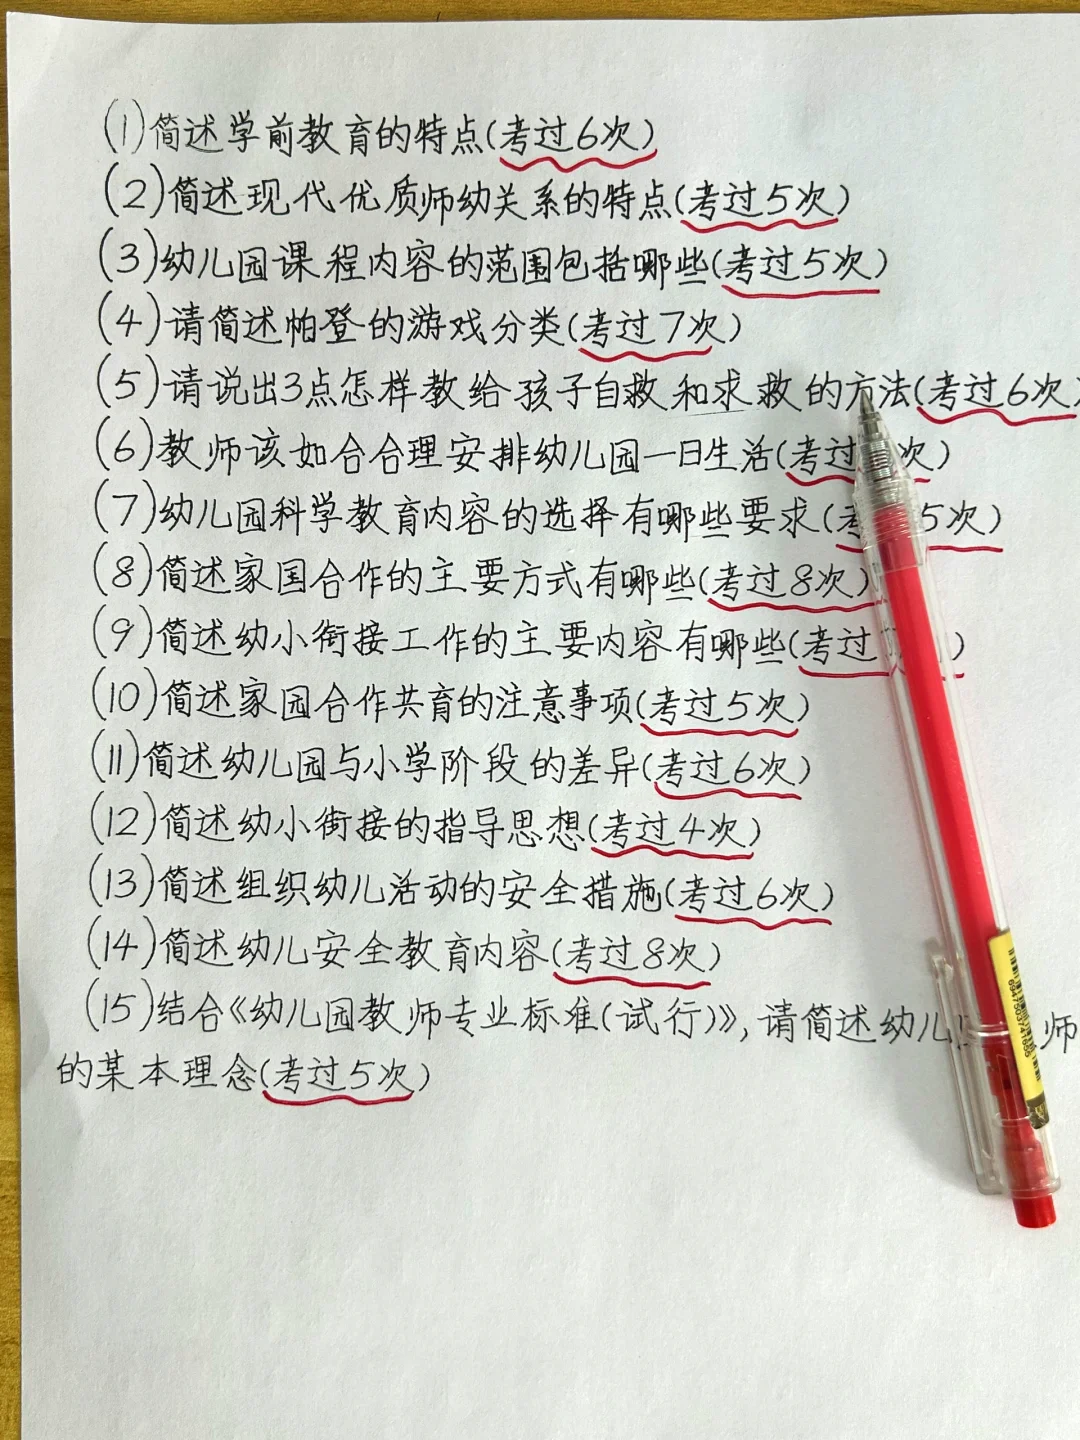 (1)简述学前教育的特点(考过6次)
(2)简述现代优质师幼关系的特点(考过5次)
(3)幼儿园课程内容的范围包括哪些(考过5次)
(4)请简述帕登的游戏分类(考过7次)
(5)请说出3点怎样教给孩子自救和求救的方法(考过6次)
(6)教师该如合合理安排幼儿园一日生活(考过次)
(7)幼儿园科学教育内容的选择有哪些要求(考5次)
(8)简述家国合作的主要方式有哪些(考过8次)
(9)简述幼小衔接工作的主要内容有哪些(考过)
(10)简述家园合作共育的注意事项(考过5次)
(11)简述幼儿园与小学阶段的差异(考过6次)
(12)简述幼小衔接的指导思想(考过4次)
(13)简述组织幼儿活动的安全措施(考过6次)
(14)简述幼儿安全教育内容(考过8次)
(15)结合《幼儿园教师专业标准(试行)》,请简述幼儿师
的某本理念(考过5次)
6947503741605